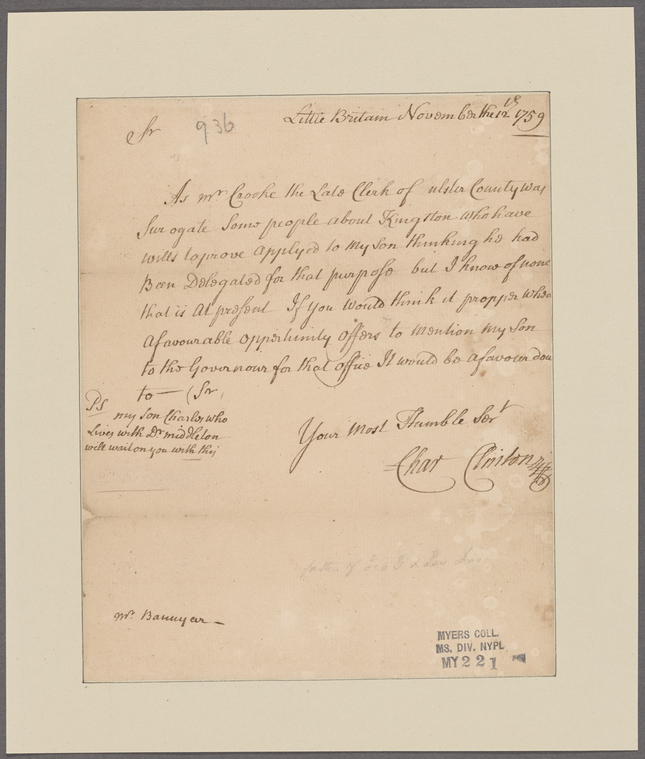 Little Britain November the 12th 1759
Sr 936
As Mr Crooke the Late Clerk of ulster County was
Surogate Some people about Kingston who have
wills to prove Applyed to My Son thinking he had
Been Delegated for that purpose but I know of none
that is At present If you Would think it propper when
A favourable opportunity offers to Mention My Son
to the Governour for that office It would be A favour don
to — Sr,
Your Most Humble Servt
Char Clinton
PS my Son Charles who
Lives with Dr middleton
will wait on you with this
father of Geo &
Mr. Bannyar —
MYERS COLL.
MS. DIV. NYPL
MY 221